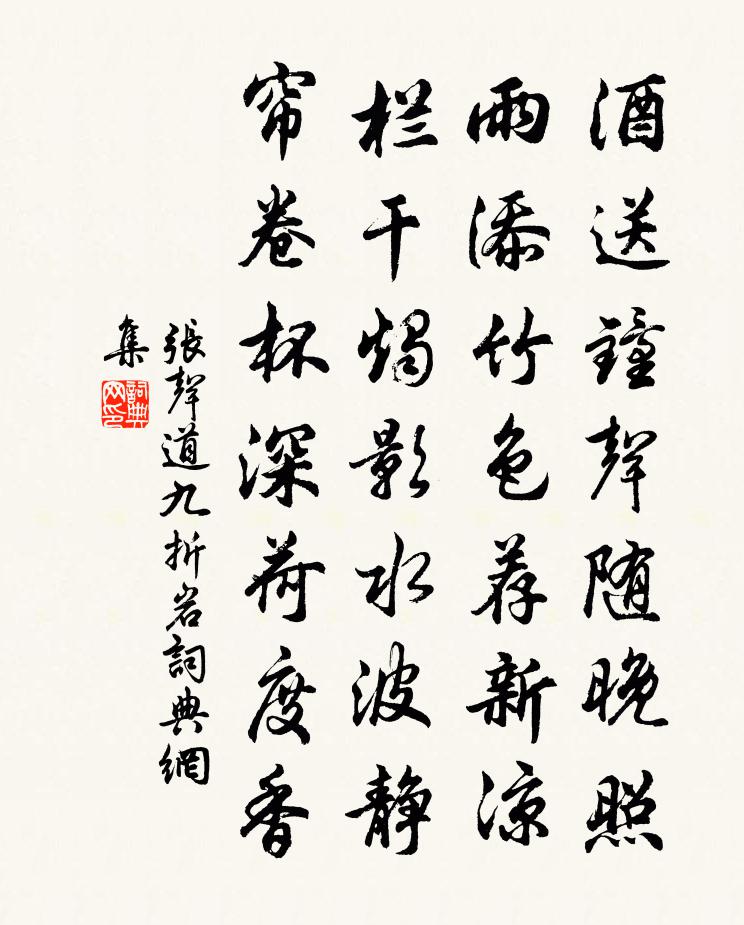 酒送鐘聲随晚照
雨添竹色荐新凉
栏干烛影水波静
帘卷杯深荷度香
張聲道九折岩詞典網
集
詞典
网印